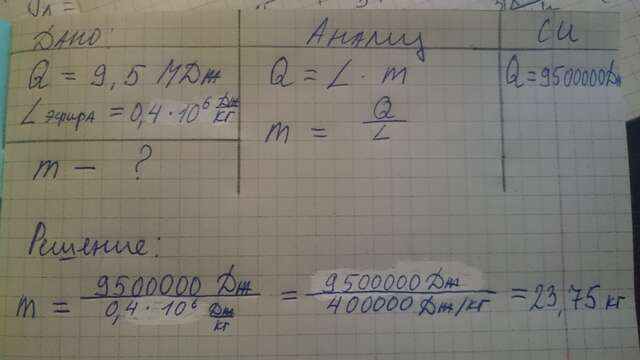 Дано:
Q = 9,5 МДж
L эфира = 0,4 · 10⁶ Дж/кг
m — ?
Анализ
Q = L · m
m = Q/L
СИ
Q = 9500000 Дж
Решение:
m = 9500000 Дж / 0,4 · 10⁶ Дж/кг = 9500000 Дж / 400000 Дж/кг = 23,75 кг